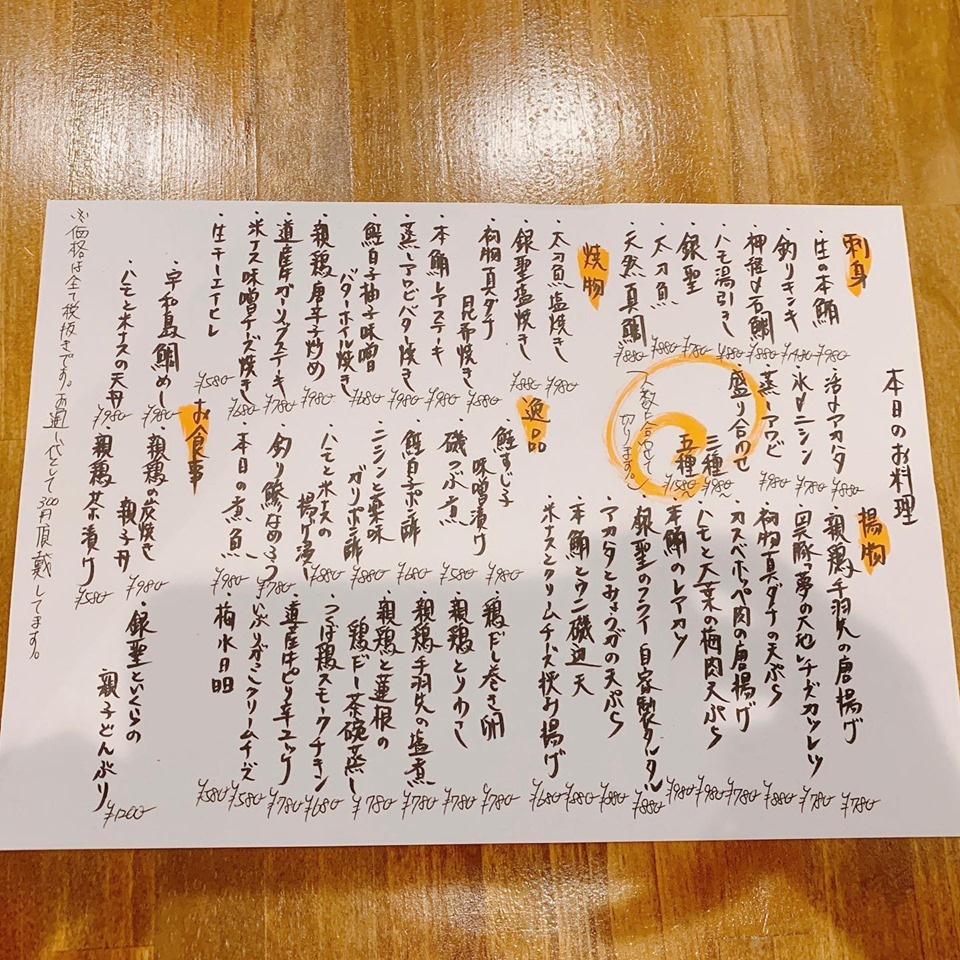 本日のお料理
刺身
・生の本鮪 ¥980
・釣りキンキ ¥1480
・神経〆石鯛 ¥880
・ハモ湯引き ¥880
・銀聖 ¥780
・太刀魚 ¥880
・天然真鯛 ¥880
・活〆アカハタ ¥880
・氷〆ニシン ¥780
・蒸しアワビ ¥980
・盛り合わせ
三種 ¥980〜
五種 ¥1580〜
(人数に合わせて切ります。)
焼物
・太刀魚塩焼き ¥980
・銀聖塩焼き ¥880
・初物真ダチ昆布焼き ¥580
・本鮪レアステーキ ¥980
・蒸しアワビバター焼き ¥980
・鮭白子柚子味噌バターホイル焼き ¥680
・親鶏唐辛子炒め ¥980
・道産牛ガーリックステーキ ¥780
・米ナス味噌チーズ焼き ¥680
・生チーエイヒレ ¥580
揚物
・親鶏手羽先の唐揚げ ¥780
・四元豚っ夢の大地レチーズカツレツ ¥780
・初物真ダチの天ぷら ¥880
・カスベホッペ肉の唐揚げ ¥780
・ハモと大葉の梅肉天ぷら ¥980
・本鮪のレアカツ ¥980
・銀聖のフライ 自家製タルタル ¥880
・アカハタとみょうがの天ぷら ¥880
・本鮪とウニ磯辺天 ¥880
・米ナスとクリームチーズ挟み揚げ ¥680
逸品
・鮭すじ子味噌漬け ¥980
・磯つぶ煮 ¥580
・鮭白子ポン酢 ¥680
・ニシンと薬味ガリポン酢 ¥880
・ハモと米ナスの揚げ漬し ¥880
・釣り鯵なめろう ¥780
・本日の煮魚 ¥980
・鶏だし巻き卵 ¥780
・親鶏とりわさ ¥780
・親鶏手羽先の塩煮 ¥780
・親鶏と蓮根の鶏だし茶碗蒸し ¥780
・つくば鶏スモークチキン ¥680
・道産牛ピリ辛ユッケ ¥780
・いぶりがっこクリームチーズ ¥580
・梅水晶 ¥580
お食事
・宇和島鯛めし ¥980
・ハモと米ナスの天丼 ¥980
・親鶏の炭焼き親子丼 ¥980
・親鶏茶漬け ¥580
・銀聖といくらの親子どんぶり ¥1200
※価格は全て税抜きです。お通し代として300円頂戴してます。